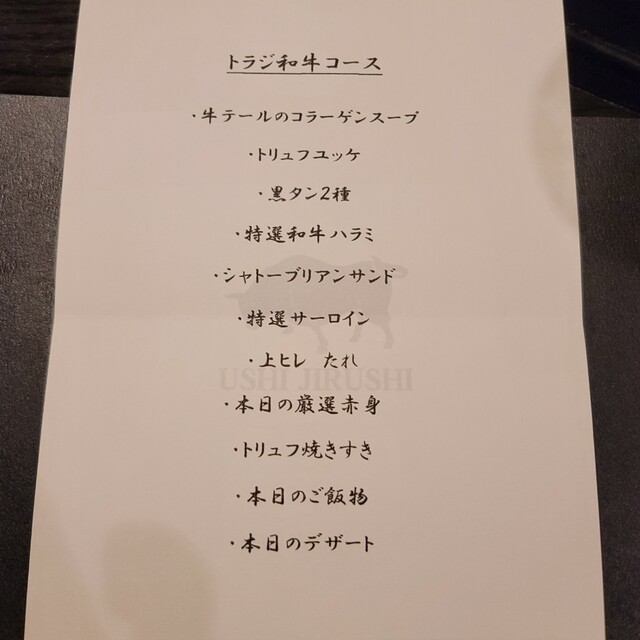 トラジ和牛コース
・牛テールのコラーゲンスープ
・トリュフユッケ
・黒タン2種
・特選和牛ハラミ
・シャトーブリアンサンド
・特選サーロイン
・上ヒレ たれ
USHI JIRUSHI
・本日の厳選赤身
・トリュフ焼きすき
・本日のご飯物
・本日のデザート